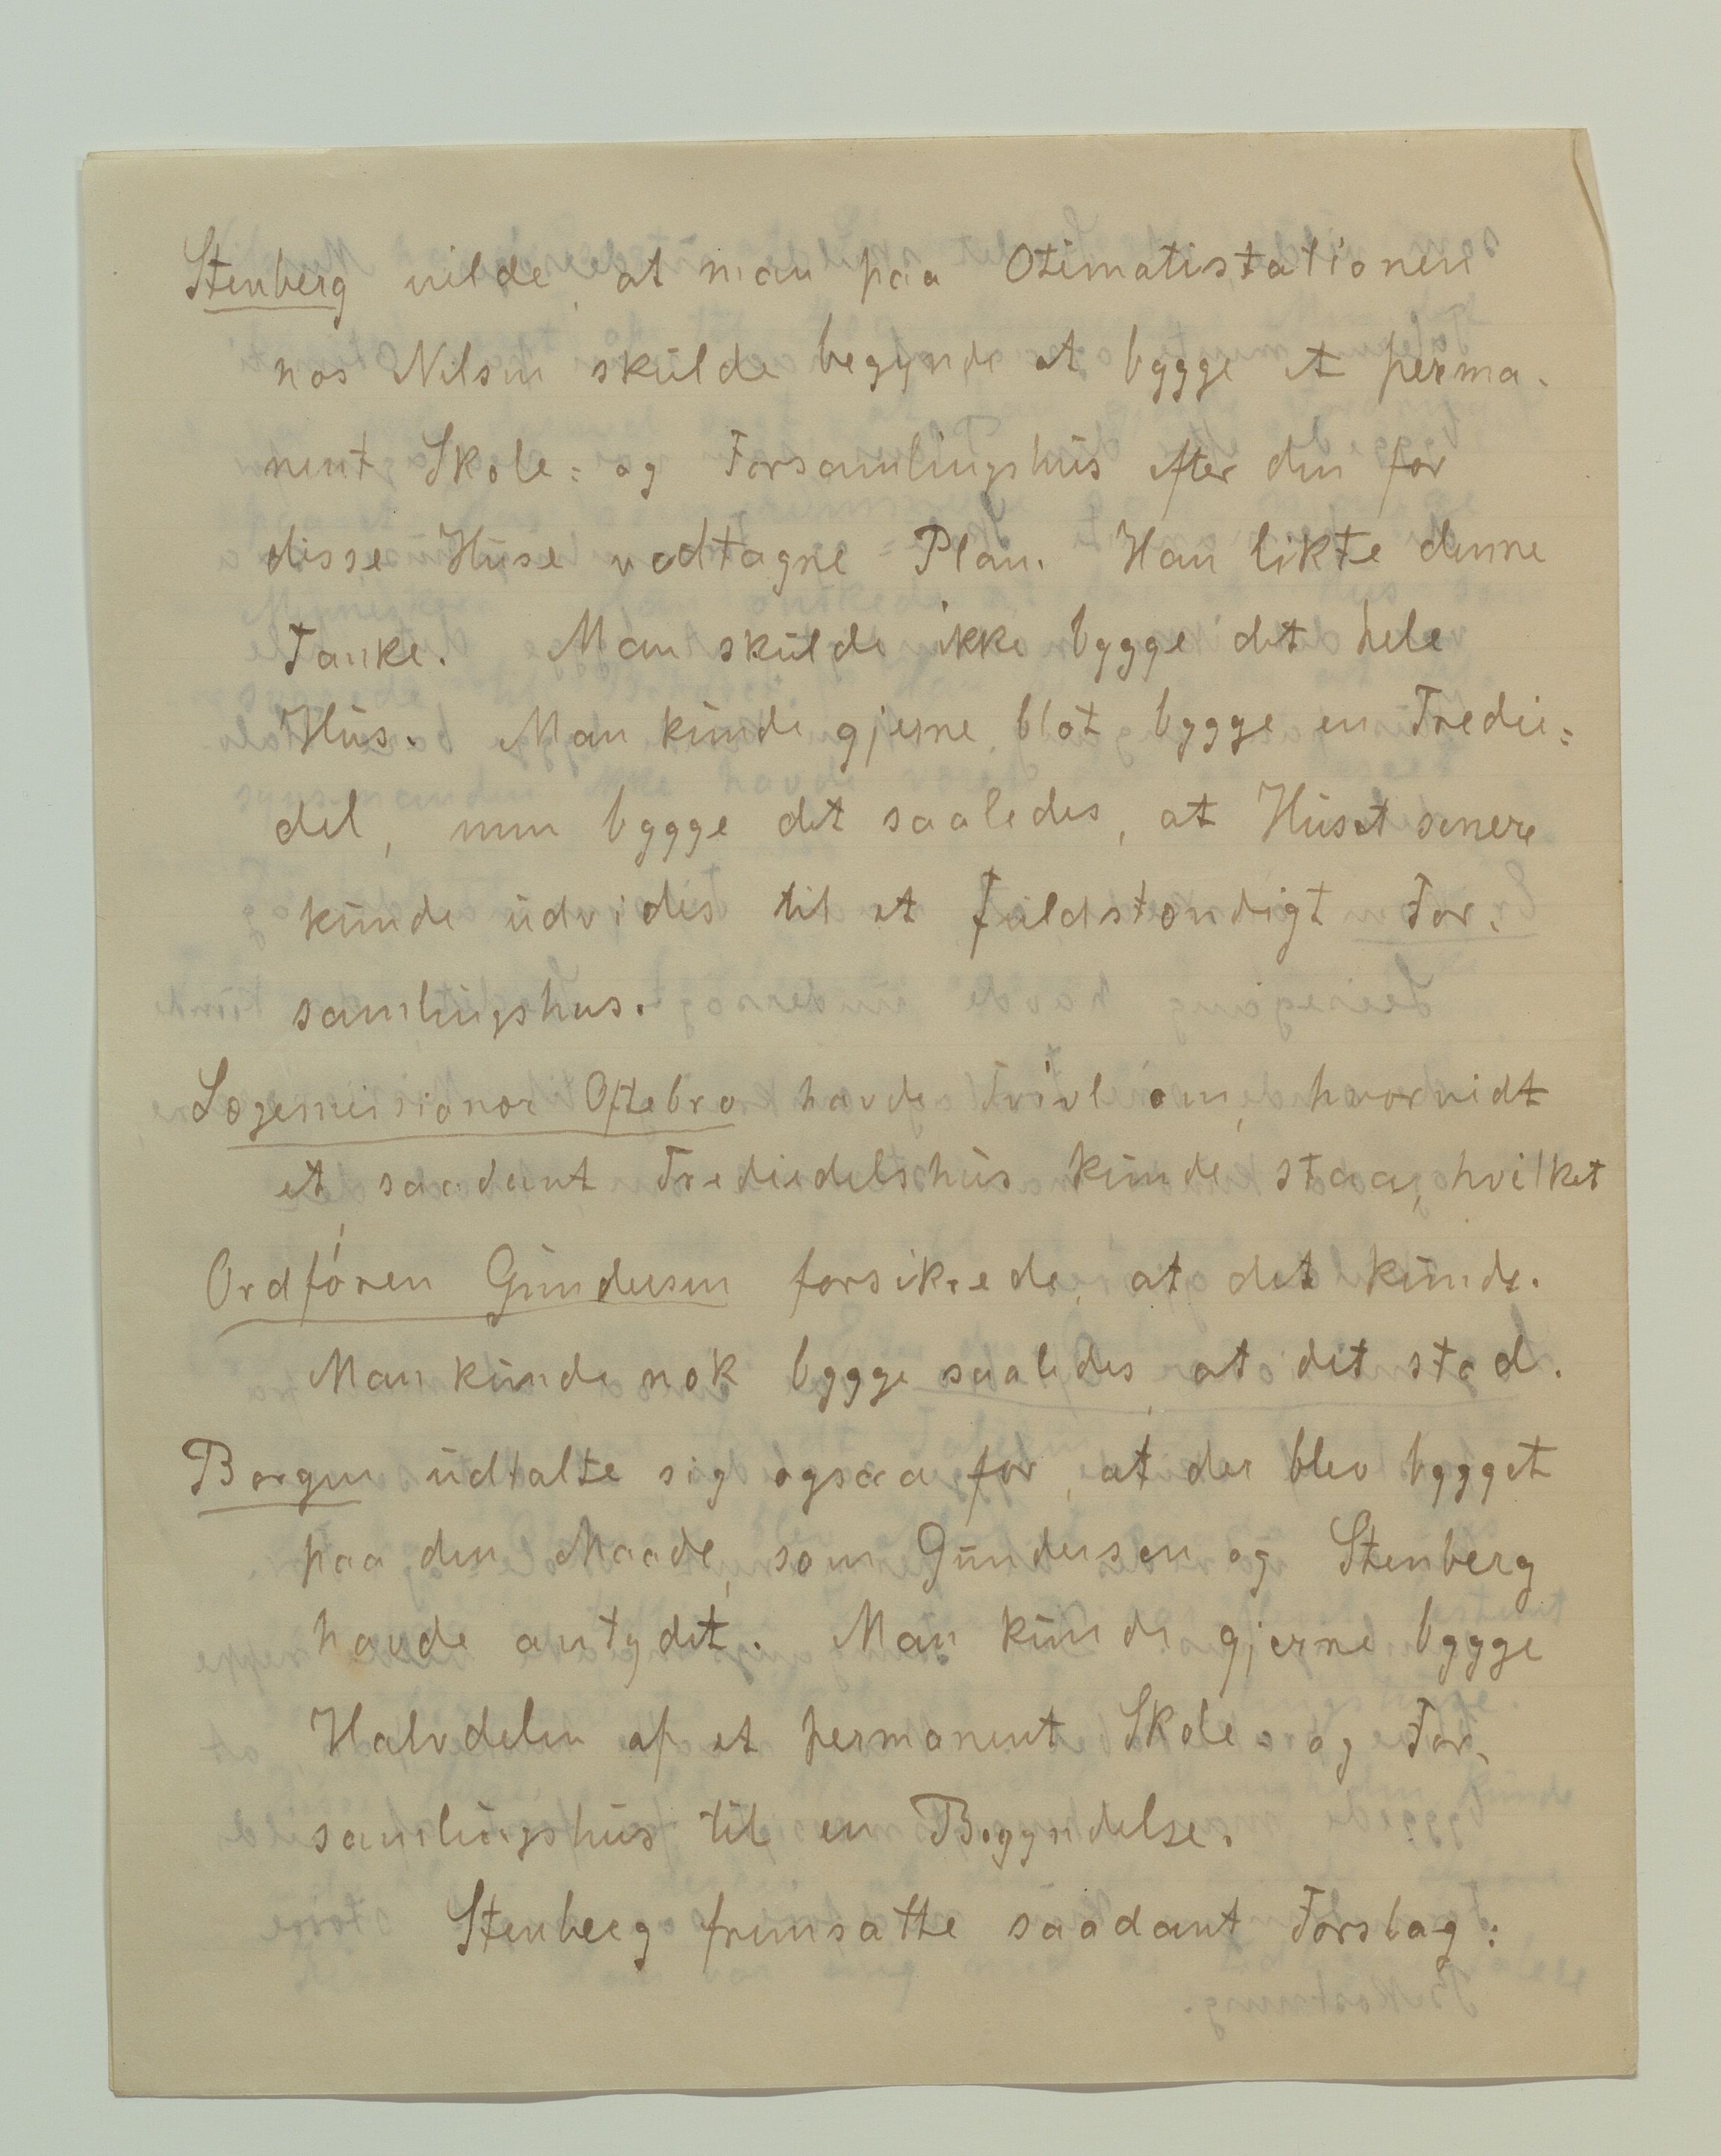 Stenberg vilde, at man paa Otimatistationen
hos Nilsen skulde begynde at bygge et perma-
nent Skole= og Forsamlingshus efter den for
disse Huse vedtagne Plan. Han likte denne
Tanke. Man skulde ikke bygge det hele
Hus. Man kunde gjerne blot bygge en Tredie=
del, men bygge det saaledes, at Huset senere
kunde udvides til et fuldstændigt For-
samlingshus.
Lægemissionær Oftebro havde Tvivl om, hvorvidt
et saadant Trediedelshus kunde staa, hvilket
Ordføren Gundersen forsikrede, at det kunde.
Man kunde nok bygge saaledes, at det stod.
Borgen udtalte sig ogsaa for, at der blev bygget
paa den Maade, som Gundersen og Stenberg
havde antydet. Man kunde gjerne bygge
Halvdelen af et permanent Skole- og For-
samlingshus til en Begyndelse.
Stenberg fremsatte saadant Forslag: